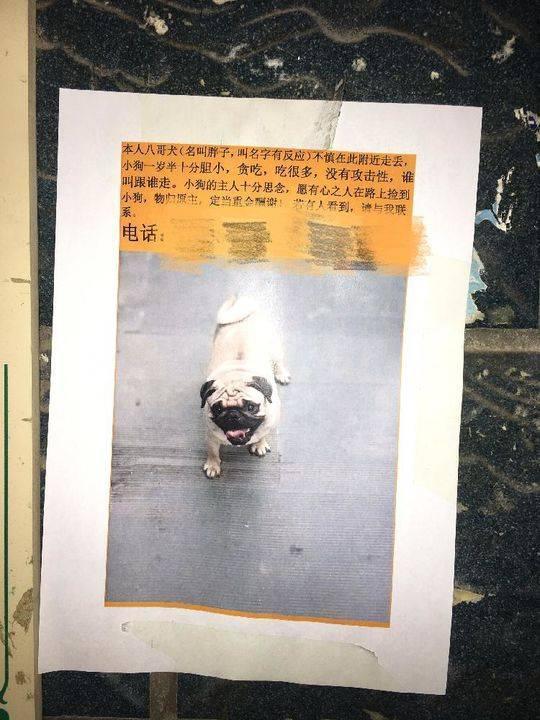 本人八哥犬(名叫胖子,叫名字有反应)不慎在此附近走丢,
小狗一岁半十分胆小,贪吃,吃很多,没有攻击性,谁
叫跟谁走。小狗的主人十分思念,愿有心之人在路上捡到
小狗,物归原主,定当重金酬谢! 若有人看到,请与我联
系。
电话